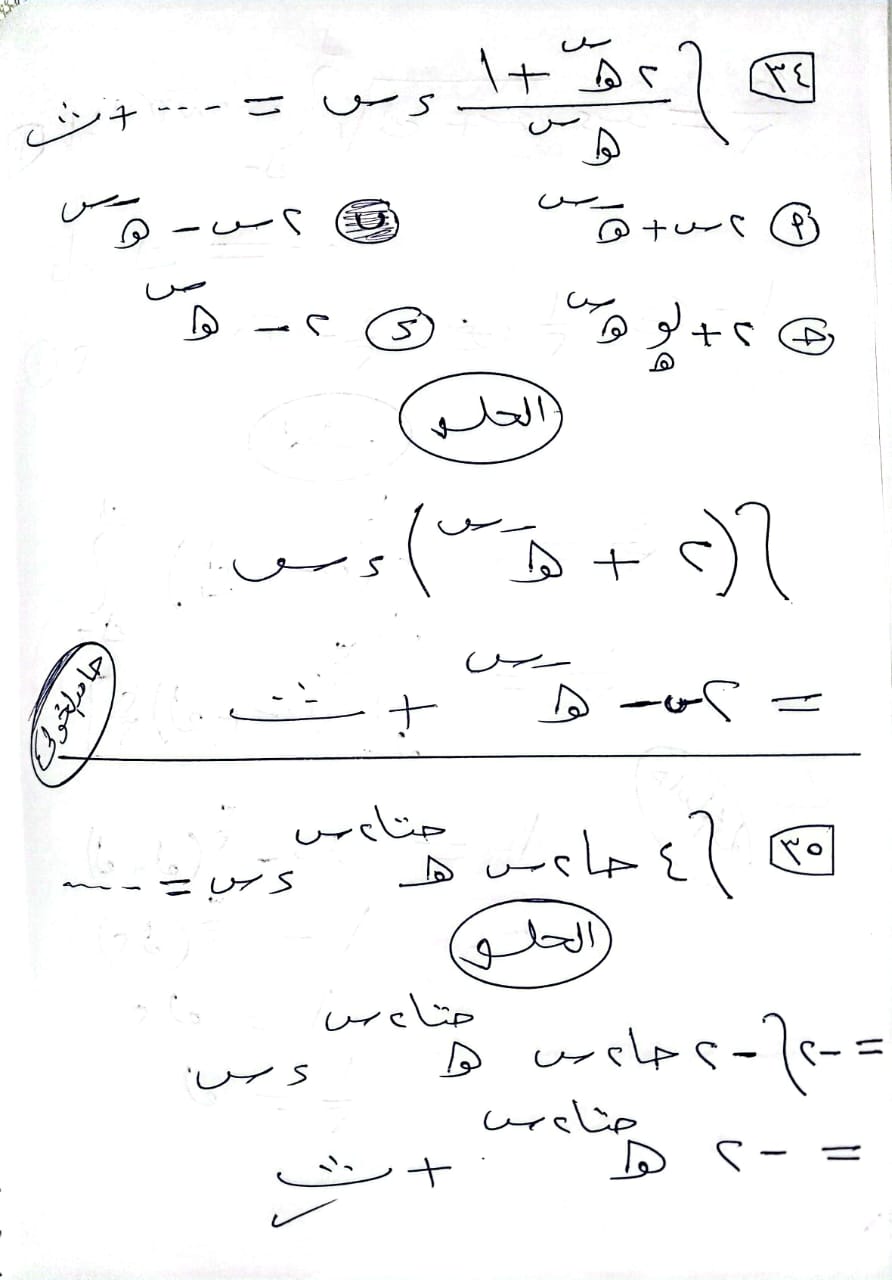 ٣٤ ∫ (٢هـ^س + ١)/(هـ^س) ء س = .... + ث
أ ٢س + هـ^-س ب ٢س - هـ^-س
جـ ٢ + لو_هـ هـ^س د ٢ - هـ^س
الحلــو
∫(٢ + هـ^-س) ء س
= ٢س - هـ^-س + ث
٣٥ ∫ ٤ حا٢س هـ^حتا٢س ء س = ....
الحلــو
= -٢ ∫ -٢ حا٢س هـ^حتا٢س ء س
= -٢ هـ^حتا٢س + ث